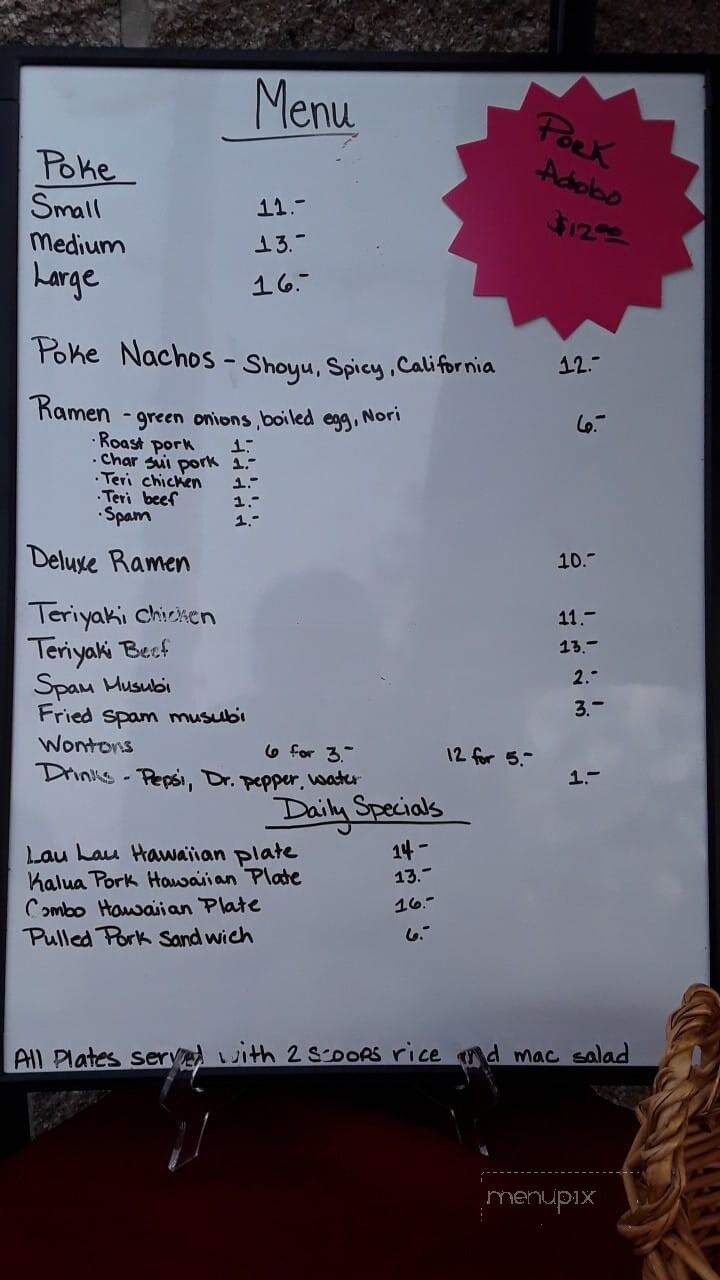 Menu
Pork
Adobo
$12.00
Poke
Small 11.-
Medium 13.-
Large 16.-
Poke Nachos - Shoyu, Spicy, California 12.-
Ramen - green onions, boiled egg, Nori 6.-
· Roast pork 1.-
· Char sui pork 1.-
· Teri chicken 1.-
· Teri beef 1.-
· Spam 1.-
Deluxe Ramen 10.-
Teriyaki Chicken 11.-
Teriyaki Beef 13.-
Spam Musubi 2.-
Fried spam musubi 3.-
Wontons 6 for 3.- 12 for 5.-
Drinks - Pepsi, Dr. pepper, water 1.-
Daily Specials
Lau Lau Hawaiian plate 14-
Kalua Pork Hawaiian Plate 13.-
Combo Hawaiian Plate 16.-
Pulled Pork Sandwich 6.-
All Plates served with 2 scoops rice and mac salad
menupix